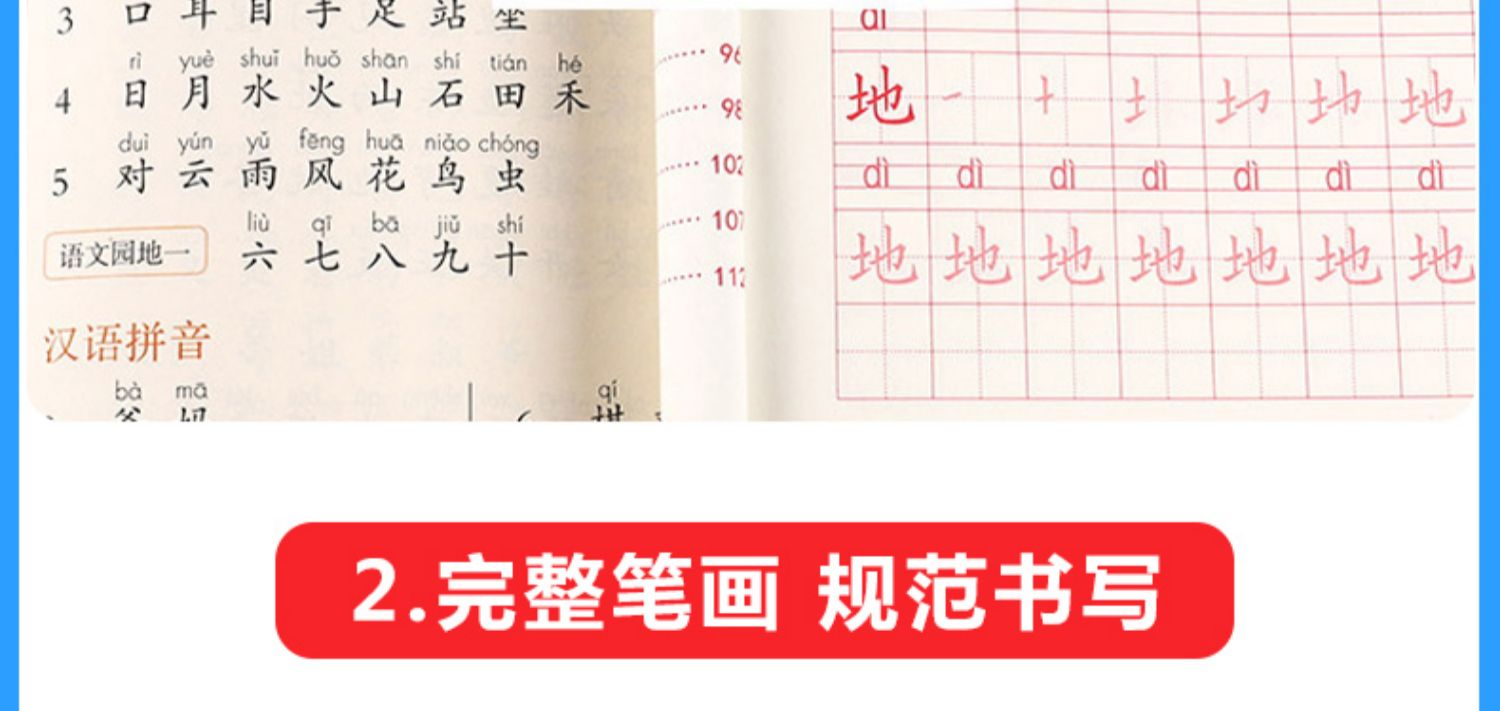 3 口 耳 目 手 足 站 坐
rì yuè shuǐ huǒ shān shí tián hé
4 日 月 水 火 山 石 田 禾
duì yún yǔ fēng huā niǎo chóng
5 对 云 雨 风 花 鸟 虫
liù qī bā jiǔ shí
语文园地一 六 七 八 九 十
汉语拼音
bà mā
爸 妈
qí
棋
96
98
102
107
112
dì
地
dì dì dì dì dì dì dì
地 地 地 地 地 地 地
2.完整笔画 规范书写